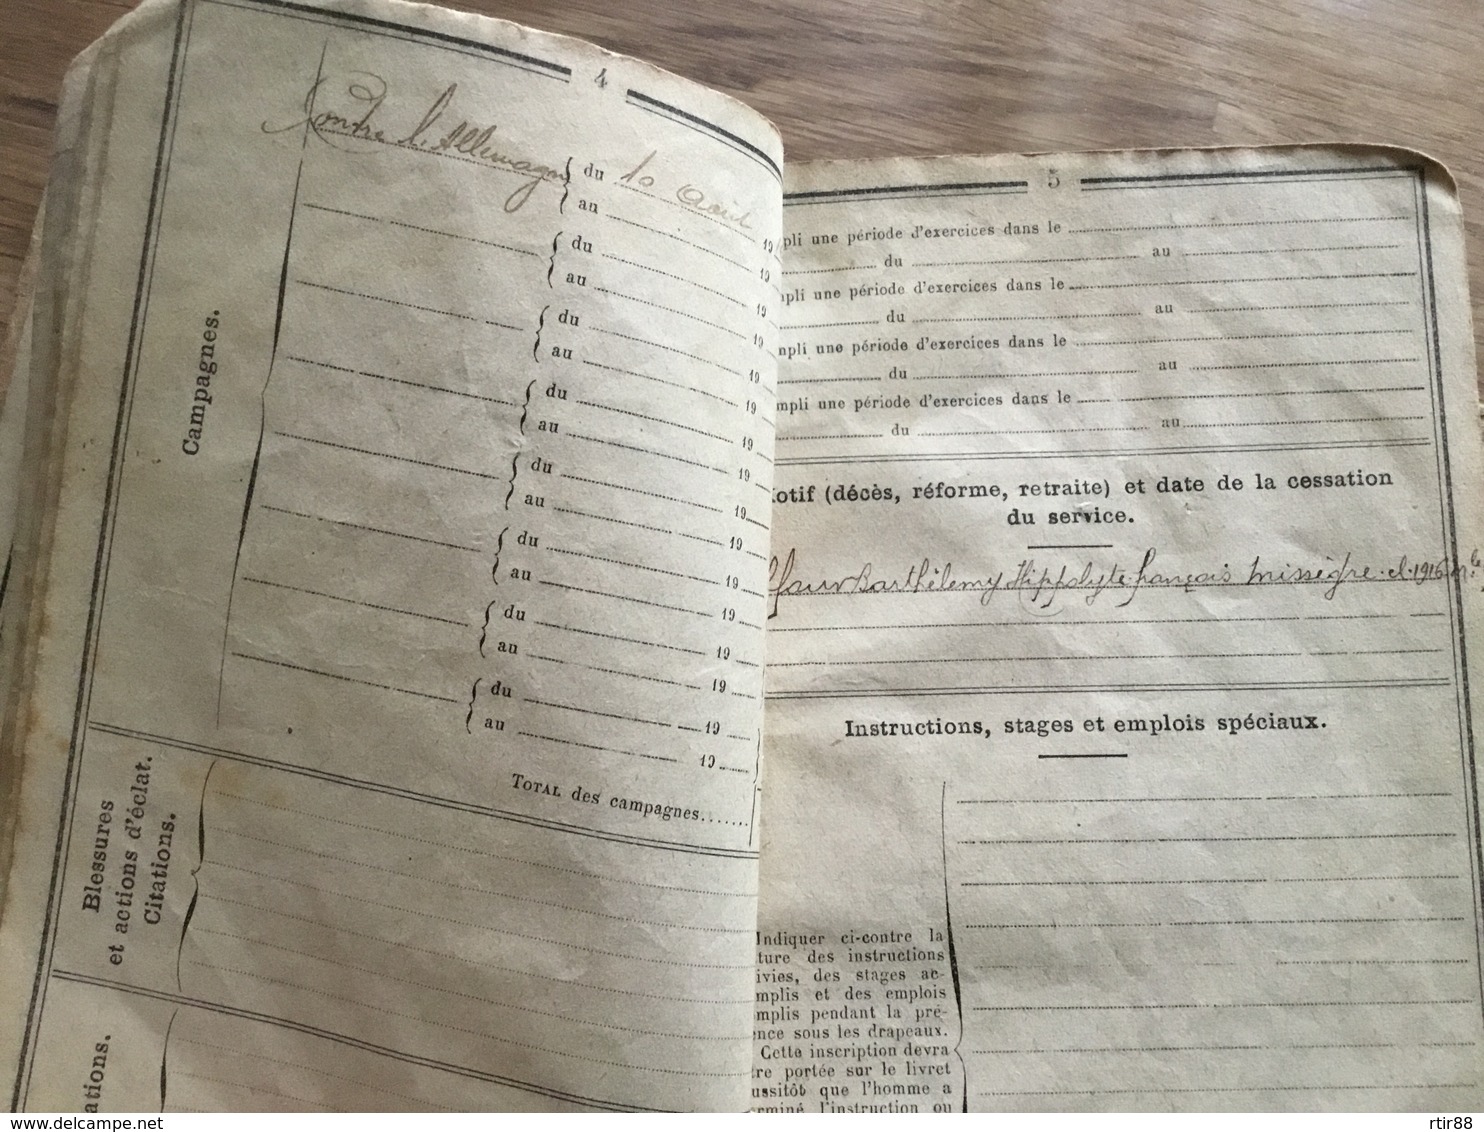 4
Contre l'Allemagne du 10 Aout 19
au 19
du 19
au 19
du 19
au 19
du 19
au 19
du 19
au 19
du 19
au 19
du 19
au 19
du 19
au 19
TOTAL des campagnes.......
Campagnes.
Blessures
et actions d'éclat.
Citations.
ations.
5
pli une période d'exercices dans le
du au
pli une période d'exercices dans le
du au
mpli une période d'exercices dans le
du au
mpli une période d'exercices dans le
du au
otif (décès, réforme, retraite) et date de la cessation
du service.
Barthélemy Hippolyte françois missègre cl 1916
Instructions, stages et emplois spéciaux.
Indiquer ci-contre la
ture des instructions
ivies, des stages ac-
mplis et des emplois
mplis pendant la pré-
ence sous les drapeaux.
Cette inscription devra
re portée sur le livret
ussitôt que l'homme a
erminé l'instruction ou
delcampe.net
rtir88